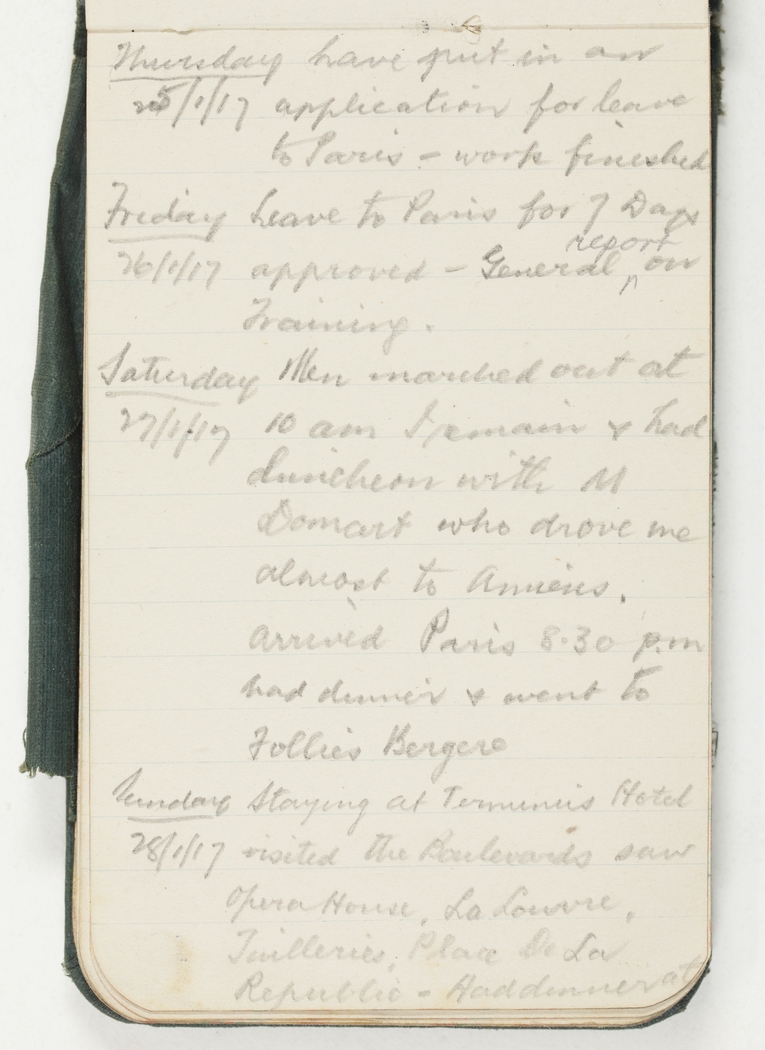 Thursday have put in an
25/1/17 application for leave
to Paris - work fineshed
Friday Leave to Paris for 7 Days
26/1/17 approved - General report on
Training.
Saturday Men marched out at
27/1/17 10 am I remain & had
luncheon with M
Domart who drove me
almost to Amiens.
arrived Paris 8.30 p.m
had dinner & went to
Follies Bergere
Sunday Staying at Terminus Hotel
28/1/17 visited the Boulevards saw
Opera House, La Louvre,
Tuilleries, Place De La
Republic - Had dinner at